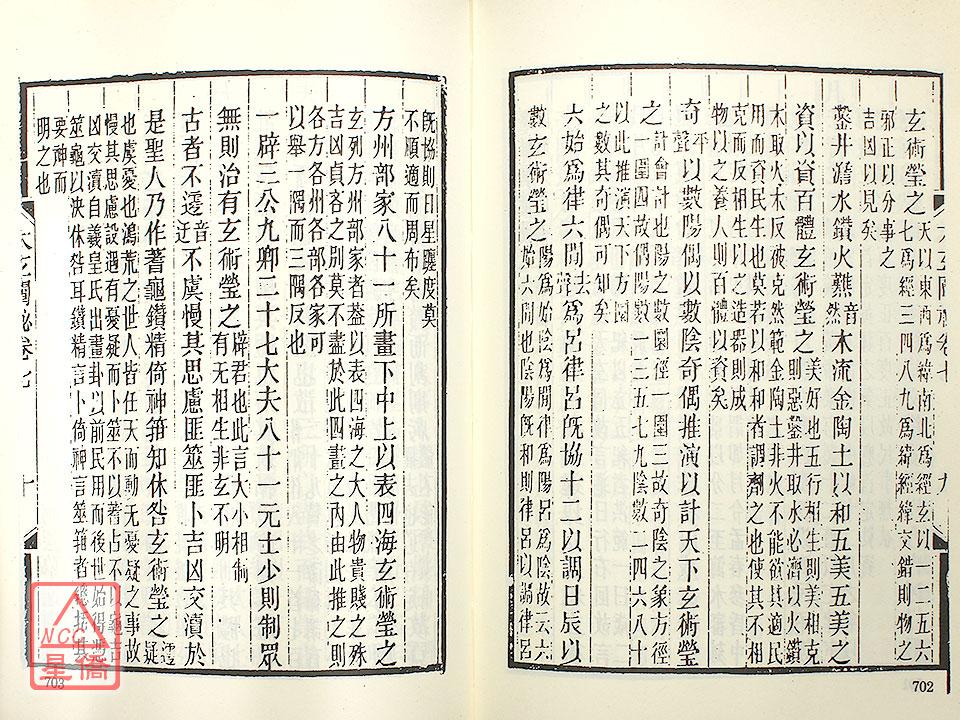 玄術瑩之 天以東西為緯南北為經玄以一二五六
七為經三四八九為緯經緯交錯則物之
邪正以分事之
吉凶以見矣
鑿井澹水鑽火難 音然 木流金陶土以和五美五美之
資以資百體玄術瑩之 美好也五行相生則美相克
則惡鑿井取水必濟以火鑽
木取火木反被克然範金陶土非木不能欲其適民
用而資民生也莫若以和和者調劑之也使其不相
克而反相生以之造器則成
物以之養人則百體以資矣
奇 平聲 以數陽偶以數陰奇偶推演以計天下玄術瑩
之 計會計也陽之數圜徑一圍三故奇陰之象方徑
一圍四故偶陽數一三五七九陰數二四六八十
以此推演天下方圜
之數其奇偶可知矣
六始為律六間 去聲 為呂律呂既協十二以調日辰以
數玄術瑩之 陽為始陰為間律為陽呂為陰故云六
始六間也始陰和陽陽和陰以調律呂
702
既協則日星躔度莫
不順適而周布矣
方州部家八十一所畫下中上以表四海玄術瑩之
玄列方州部家者蓋以表四海之大人物貴賤之殊
吉凶貞吝之別莫不盡於此四畫之內由此推之則
各方各州各部各家可
以舉一隅而三隅反也
一辟三公九卿二十七大夫八十一元士少則制眾
無則治有玄術瑩之 辟君也此言大小相制
有無相生非玄不明
古者不遷 音迂 不虞慢其思慮匪筮匪卜吉凶交瀆於
是聖人乃作蓍龜鑽精倚神箝知休咎玄術瑩之 疑
也虞憂也鴻荒之世人皆任天而動無憂疑之事故
慢其思慮設遇有憂疑而卜筮不以蓍占不以龜吉
凶交瀆自羲皇氏出畫卦以前民用而後世始得
筮龜以決休咎耳鑽精言卜倚神言筮箝者
要神而
明之也
太玄闡秘卷七
十
703